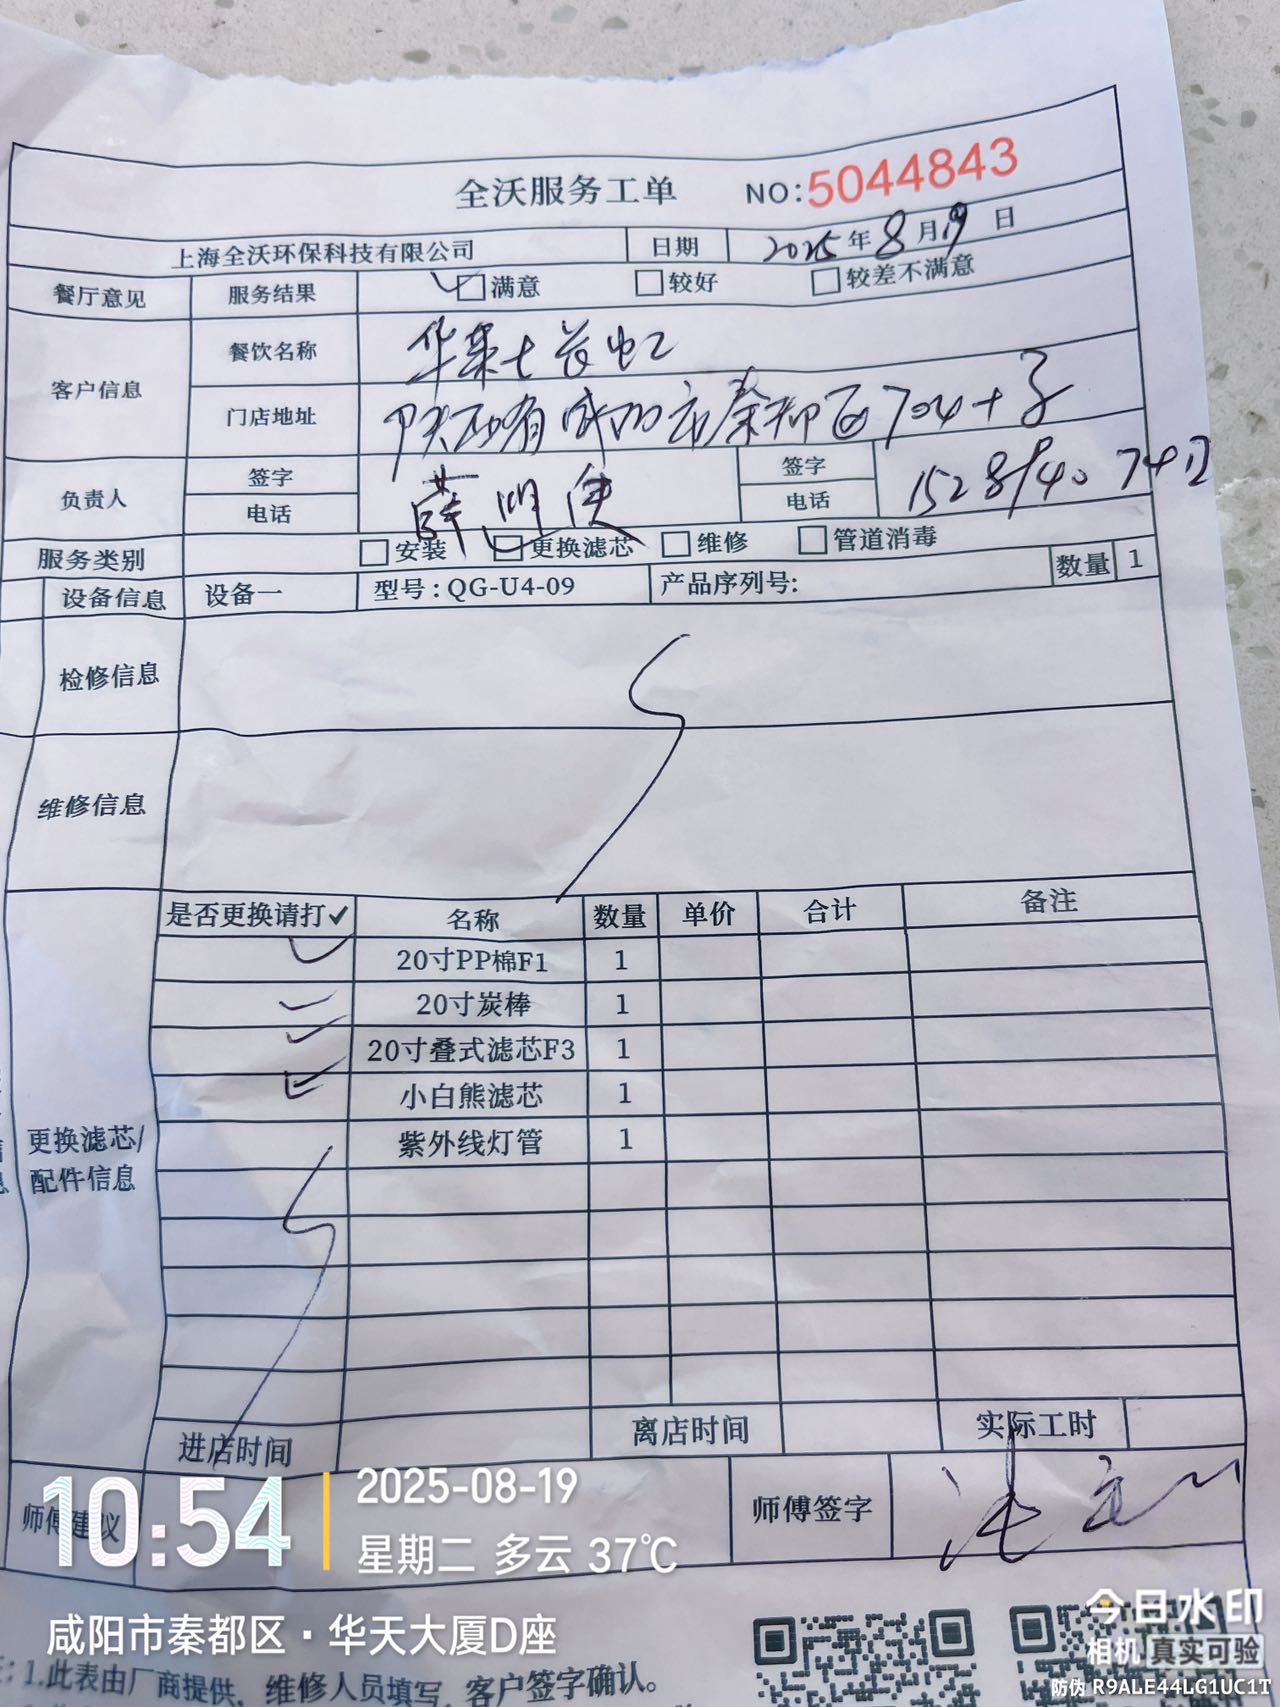 全沃服务工单 NO:5044843
上海全沃环保科技有限公司 日期 2025年8月19日
餐厅意见 服务结果 满意 较好 较差不满意
客户信息 餐饮名称 华莱士长虹
门店地址 陕西省咸阳市秦都区704十字
负责人 签字 薛 签字
电话 电话 152
服务类别 安装 更换滤芯 维修 管道消毒
设备信息 设备一 型号:QG-U4-09 产品序列号: 数量 1
检修信息
维修信息
更换滤芯/配件信息 是否更换请打✓ 名称 数量 单价 合计 备注
✓ 20寸PP棉F1 1
✓ 20寸炭棒 1
✓ 20寸叠式滤芯F3 1
✓ 小白熊滤芯 1
紫外线灯管 1
进店时间 离店时间 实际工时
师傅建议 师傅签字
10:54 2025-08-19
星期二 多云 37℃
咸阳市秦都区·华天大厦D座
1.此表由厂商提供，维修人员填写，客户签字确认。
今日水印
相机 真实可验
防伪 R9ALE44LG1UC1T